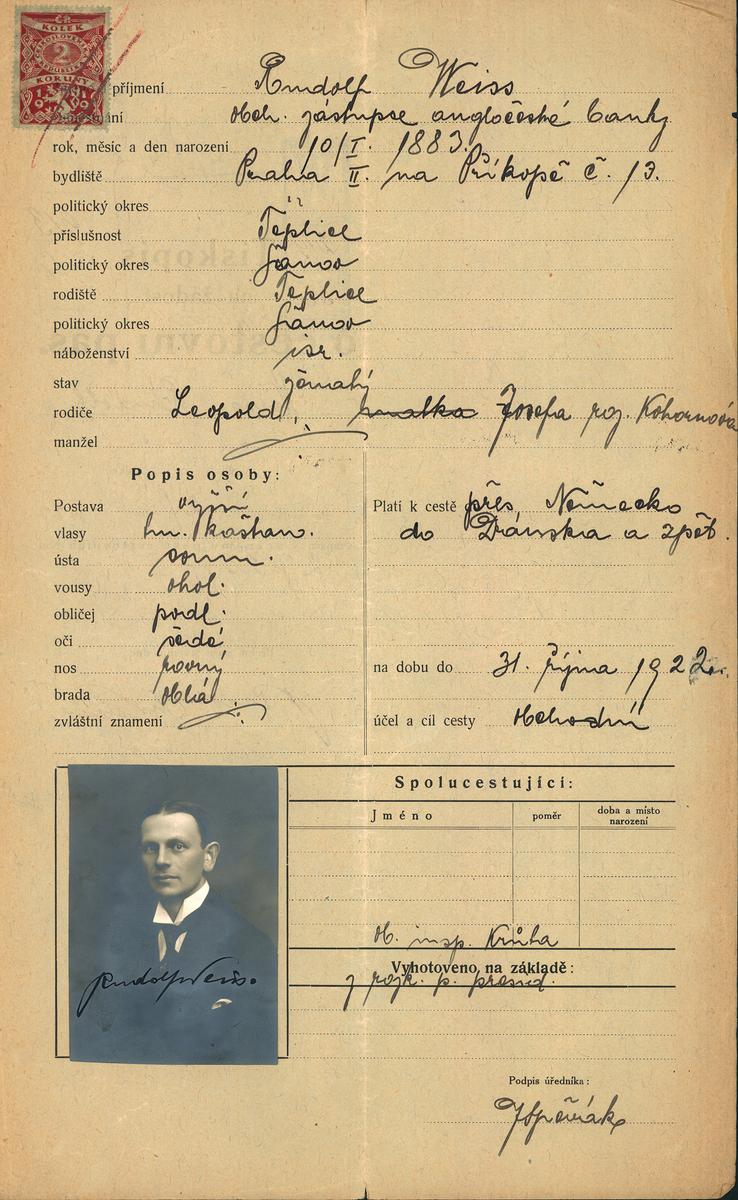 ČR
KOLEK
2
KORUNY
příjmení Rudolf Weiss
obch. zástupce angločeské banky
rok, měsíc a den narození 10/I. 1883.
bydliště Praha II. na Příkopě č. 13.
politický okres
příslušnost Teplice
politický okres Šanov
rodiště Teplice
politický okres Šanov
náboženství isr.
stav ženatý
rodiče Leopold, matka Josefa roz. Kohornová
manžel
Popis osoby:
Postava vyšší
vlasy tm. kaštan.
ústa soum.
vousy ohol.
obličej podl.
oči šedé
nos rovný
brada oblá
zvláštní znamení
Platí k cestě přes Německo
do Dánska a zpět.
na dobu do 31. října 1922
účel a cíl cesty obchodní
Spolucestující:
Jméno poměr doba a místo narození
ob. insp. Krůta
Vyhotoveno na základě:
z rozk. p. presid.
Rudolf Weiss.
Podpis úředníka: